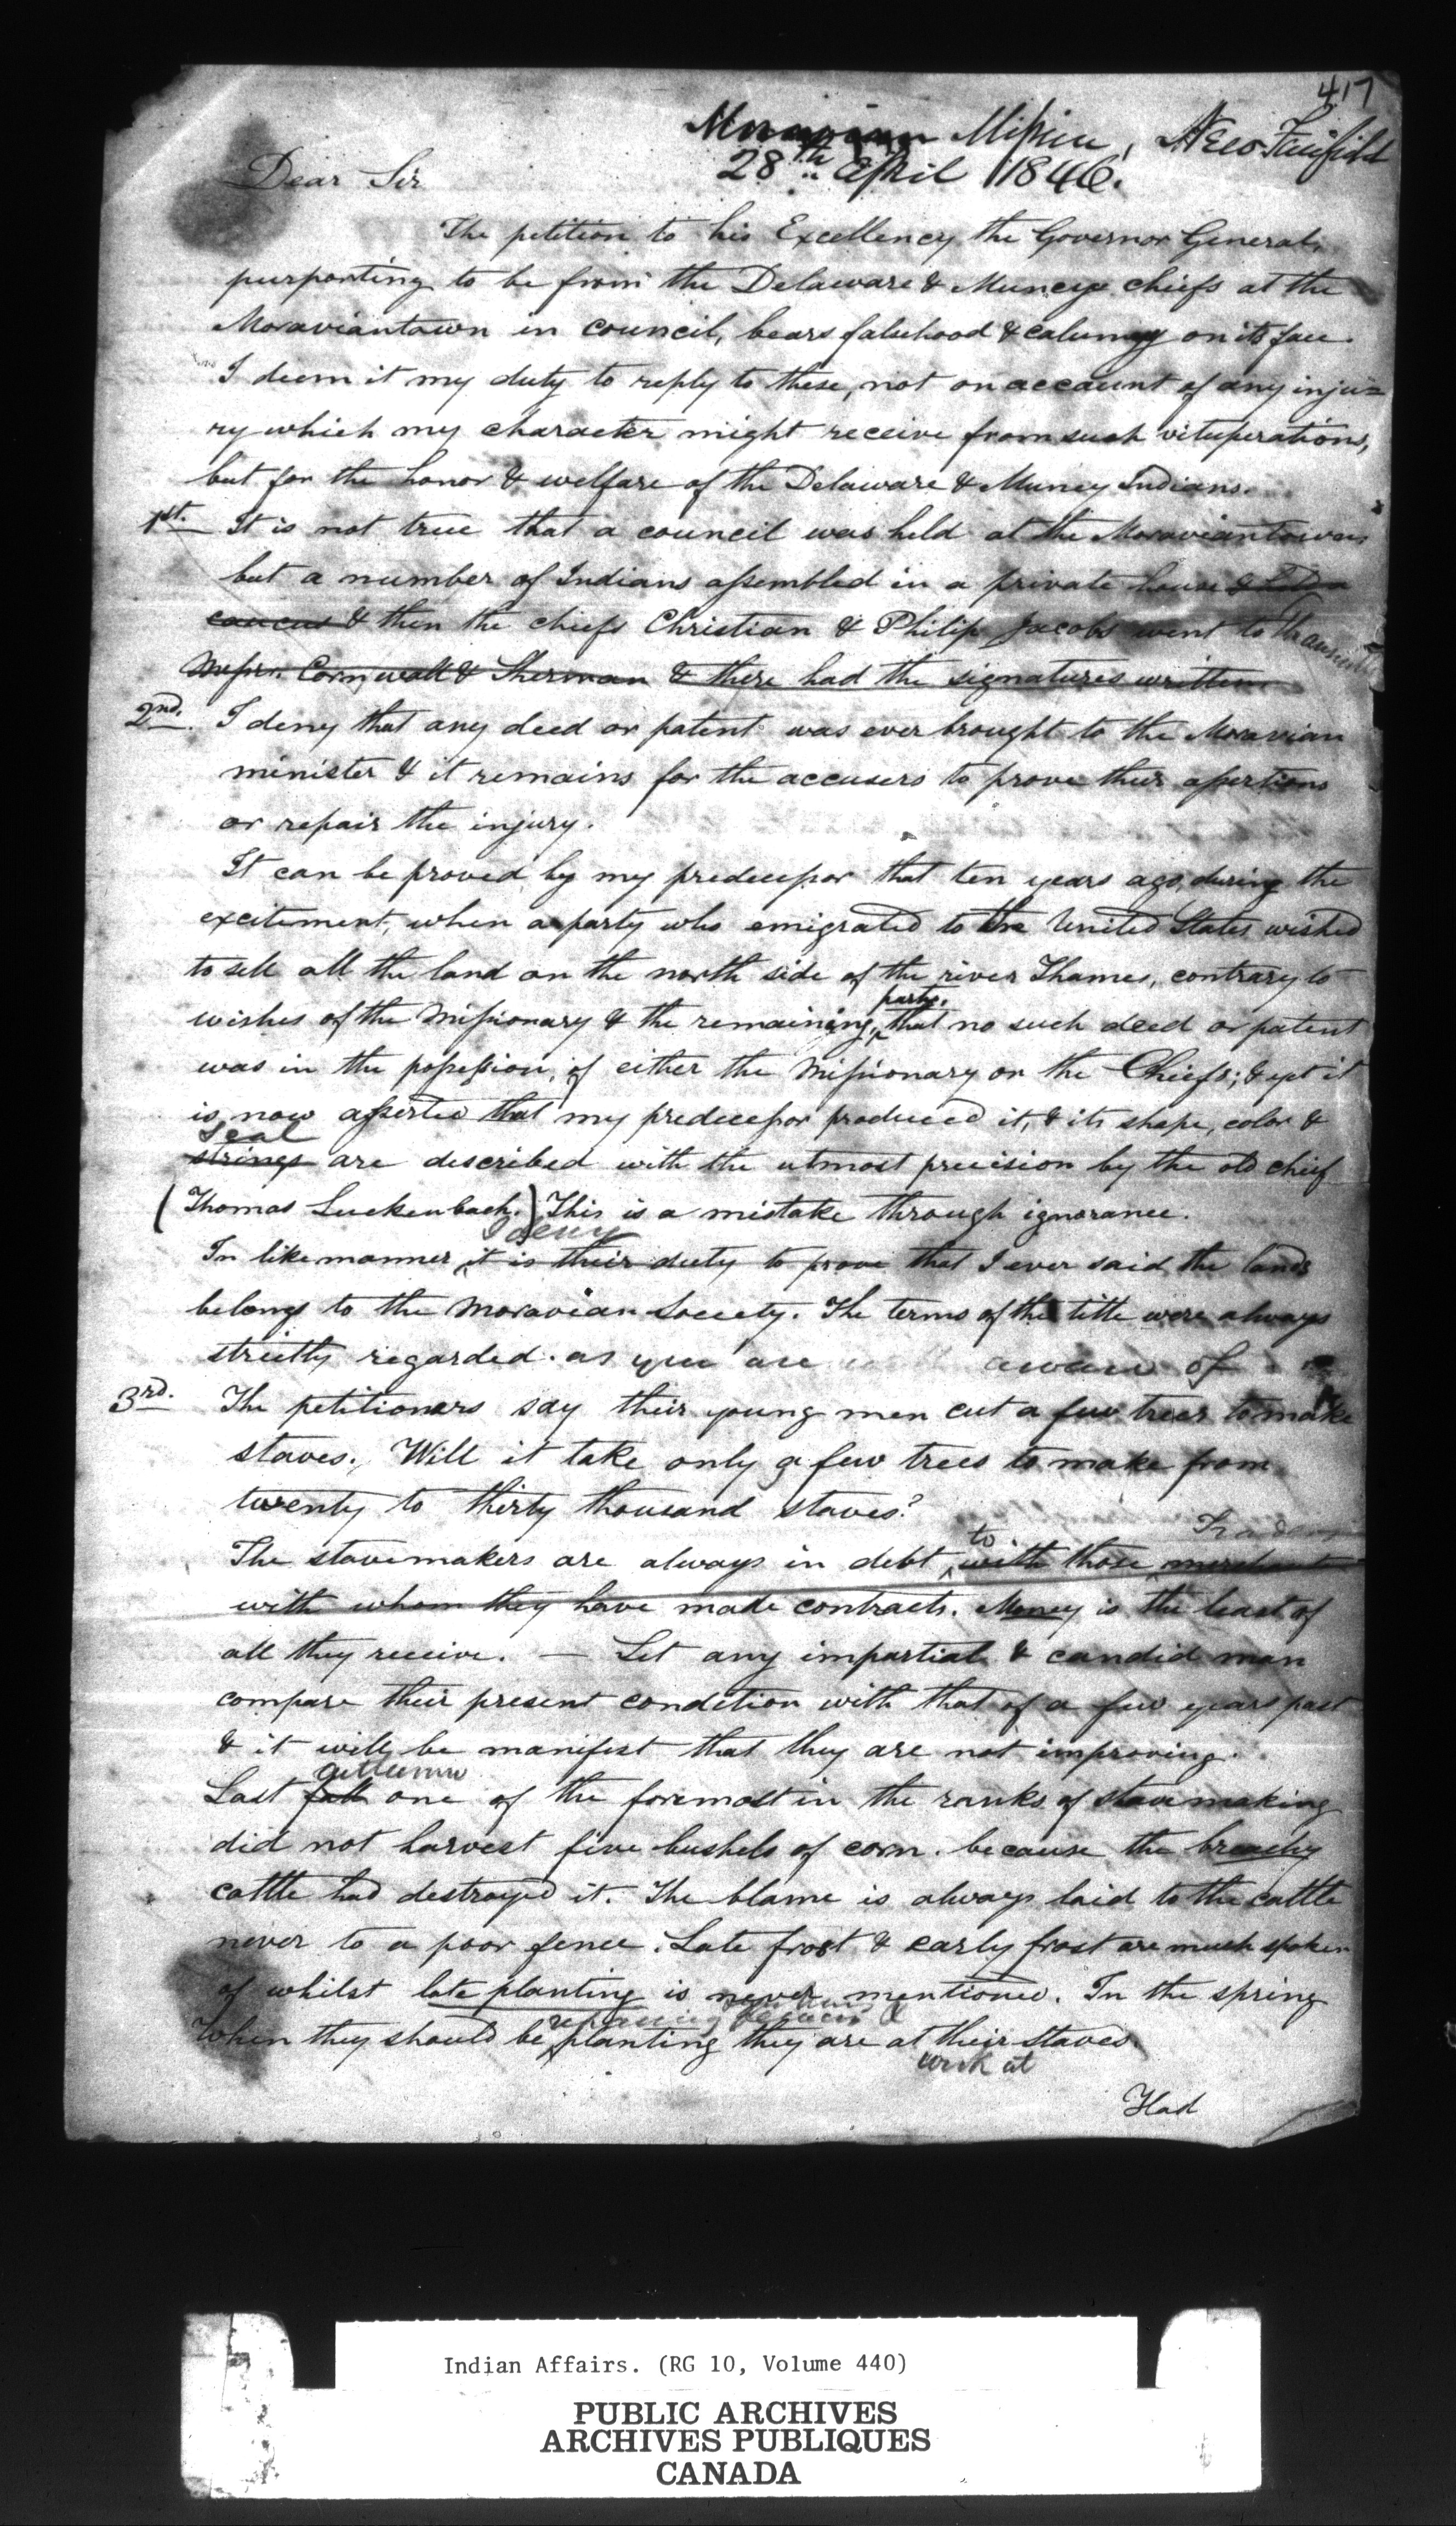 417
Moravian Mission, New Fairfield
28th April 1846.
Dear Sir
The petition to his Excellency the Governor General,
purporting to be from the Delaware & Muncey chiefs at the
Moraviantown in council, bears falsehood & calumny on its face.
I deem it my duty to reply to these, not on account of any inju=
ry which my character might receive from such vituperations,
but for the honor & welfare of the Delaware & Muncy Indians.
1st. It is not true that a council was held at the Moraviantown,
but a number of Indians assembled in a private house & held a
caucus & then the chiefs Christian & Philip Jacobs went to
Messrs. Cornwall & Sherman & there had the signatures written
2nd. I deny that any deed or patent was ever brought to the Moravian
minister & it remains for the accusers to prove their assertions
or repair the injury.
It can be proved by my predecessor that ten years ago, during the
excitement, when a party who emigrated to the United States wished
to sell all the land on the north side of the river Thames, contrary to
party.
wishes of the Missionary & the remaining, that no such deed or patent
was in the possession, of either the Missionary or the Chiefs; & yet it
is now asserted that my predecessor produced it, & its shape, color &
seal
strings are described with the utmost precision by the old chief
(Thomas Luckenbach.) This is a mistake through ignorance.
I deny
In like manner, it is their duty to prove that I ever said the lands
belongs to the Moravian Society. The terms of the title were always
strictly regarded. as you are aware of
3rd. The petitioners say their young men cut a few trees to make
staves. Will it take only a few trees to make from
twenty to thirty thousand staves?
to Traders
The stavemakers are always in debt with those merchant
with whom they have made contracts. Money is the least of
all they receive. — Let any impartial & candid man
compare their present condition with that of a few years past
& it will be manifest that they are not improving.
autumn
Last fall one of the foremost in the ranks of stavemaking
did not harvest five bushels of corn. because the breachy
cattle had destroyed it. The blame is always laid to the cattle
never to a poor fence. Late frost & early frost are much spoken
of whilst late planting is never mentioned. In the spring
repairing fences &
When they should be planting they are at their staves.
work at
Had
Indian Affairs. (RG 10, Volume 440)
PUBLIC ARCHIVES
ARCHIVES PUBLIQUES
CANADA